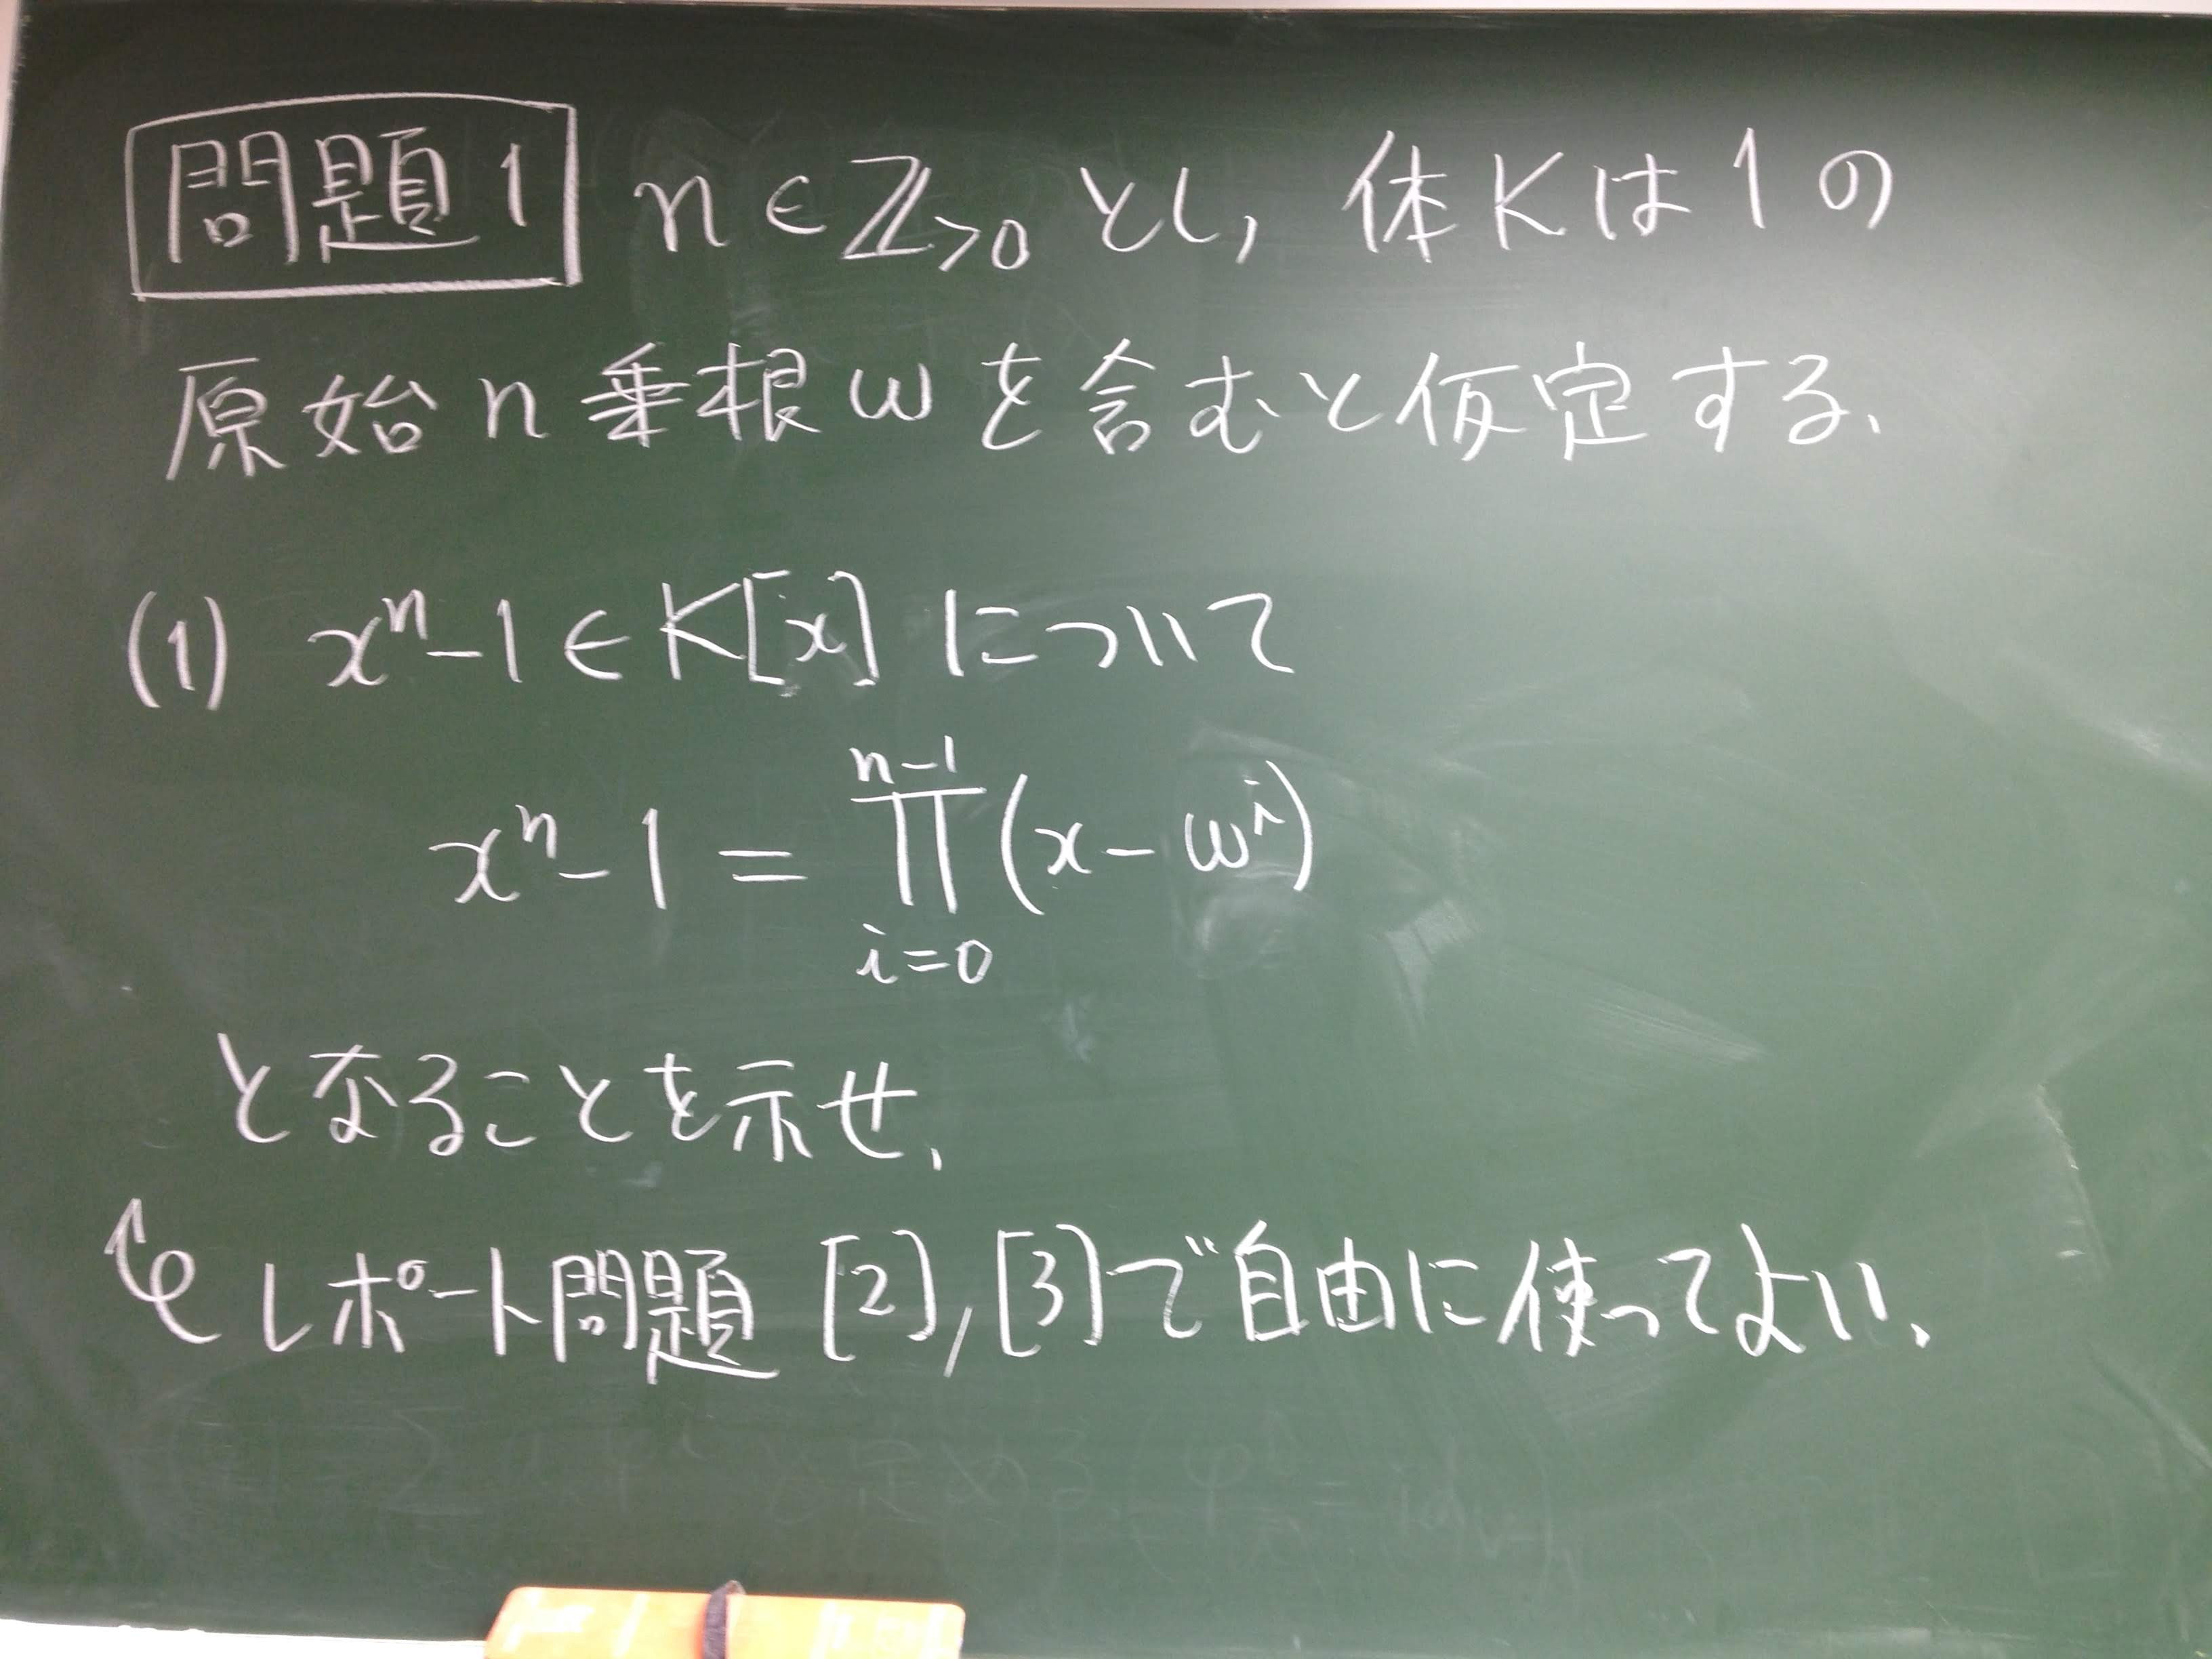 問題1 n∈ℤ>0 とし, 体Kは1の
原始n乗根ωを含むと仮定する.
(1) xⁿ-1∈K[x] について
xⁿ-1 = ∏_{i=0}^{n-1} (x-ωⁱ)
となることを示せ.
レポート問題 [2], [3]で自由に使ってよい.